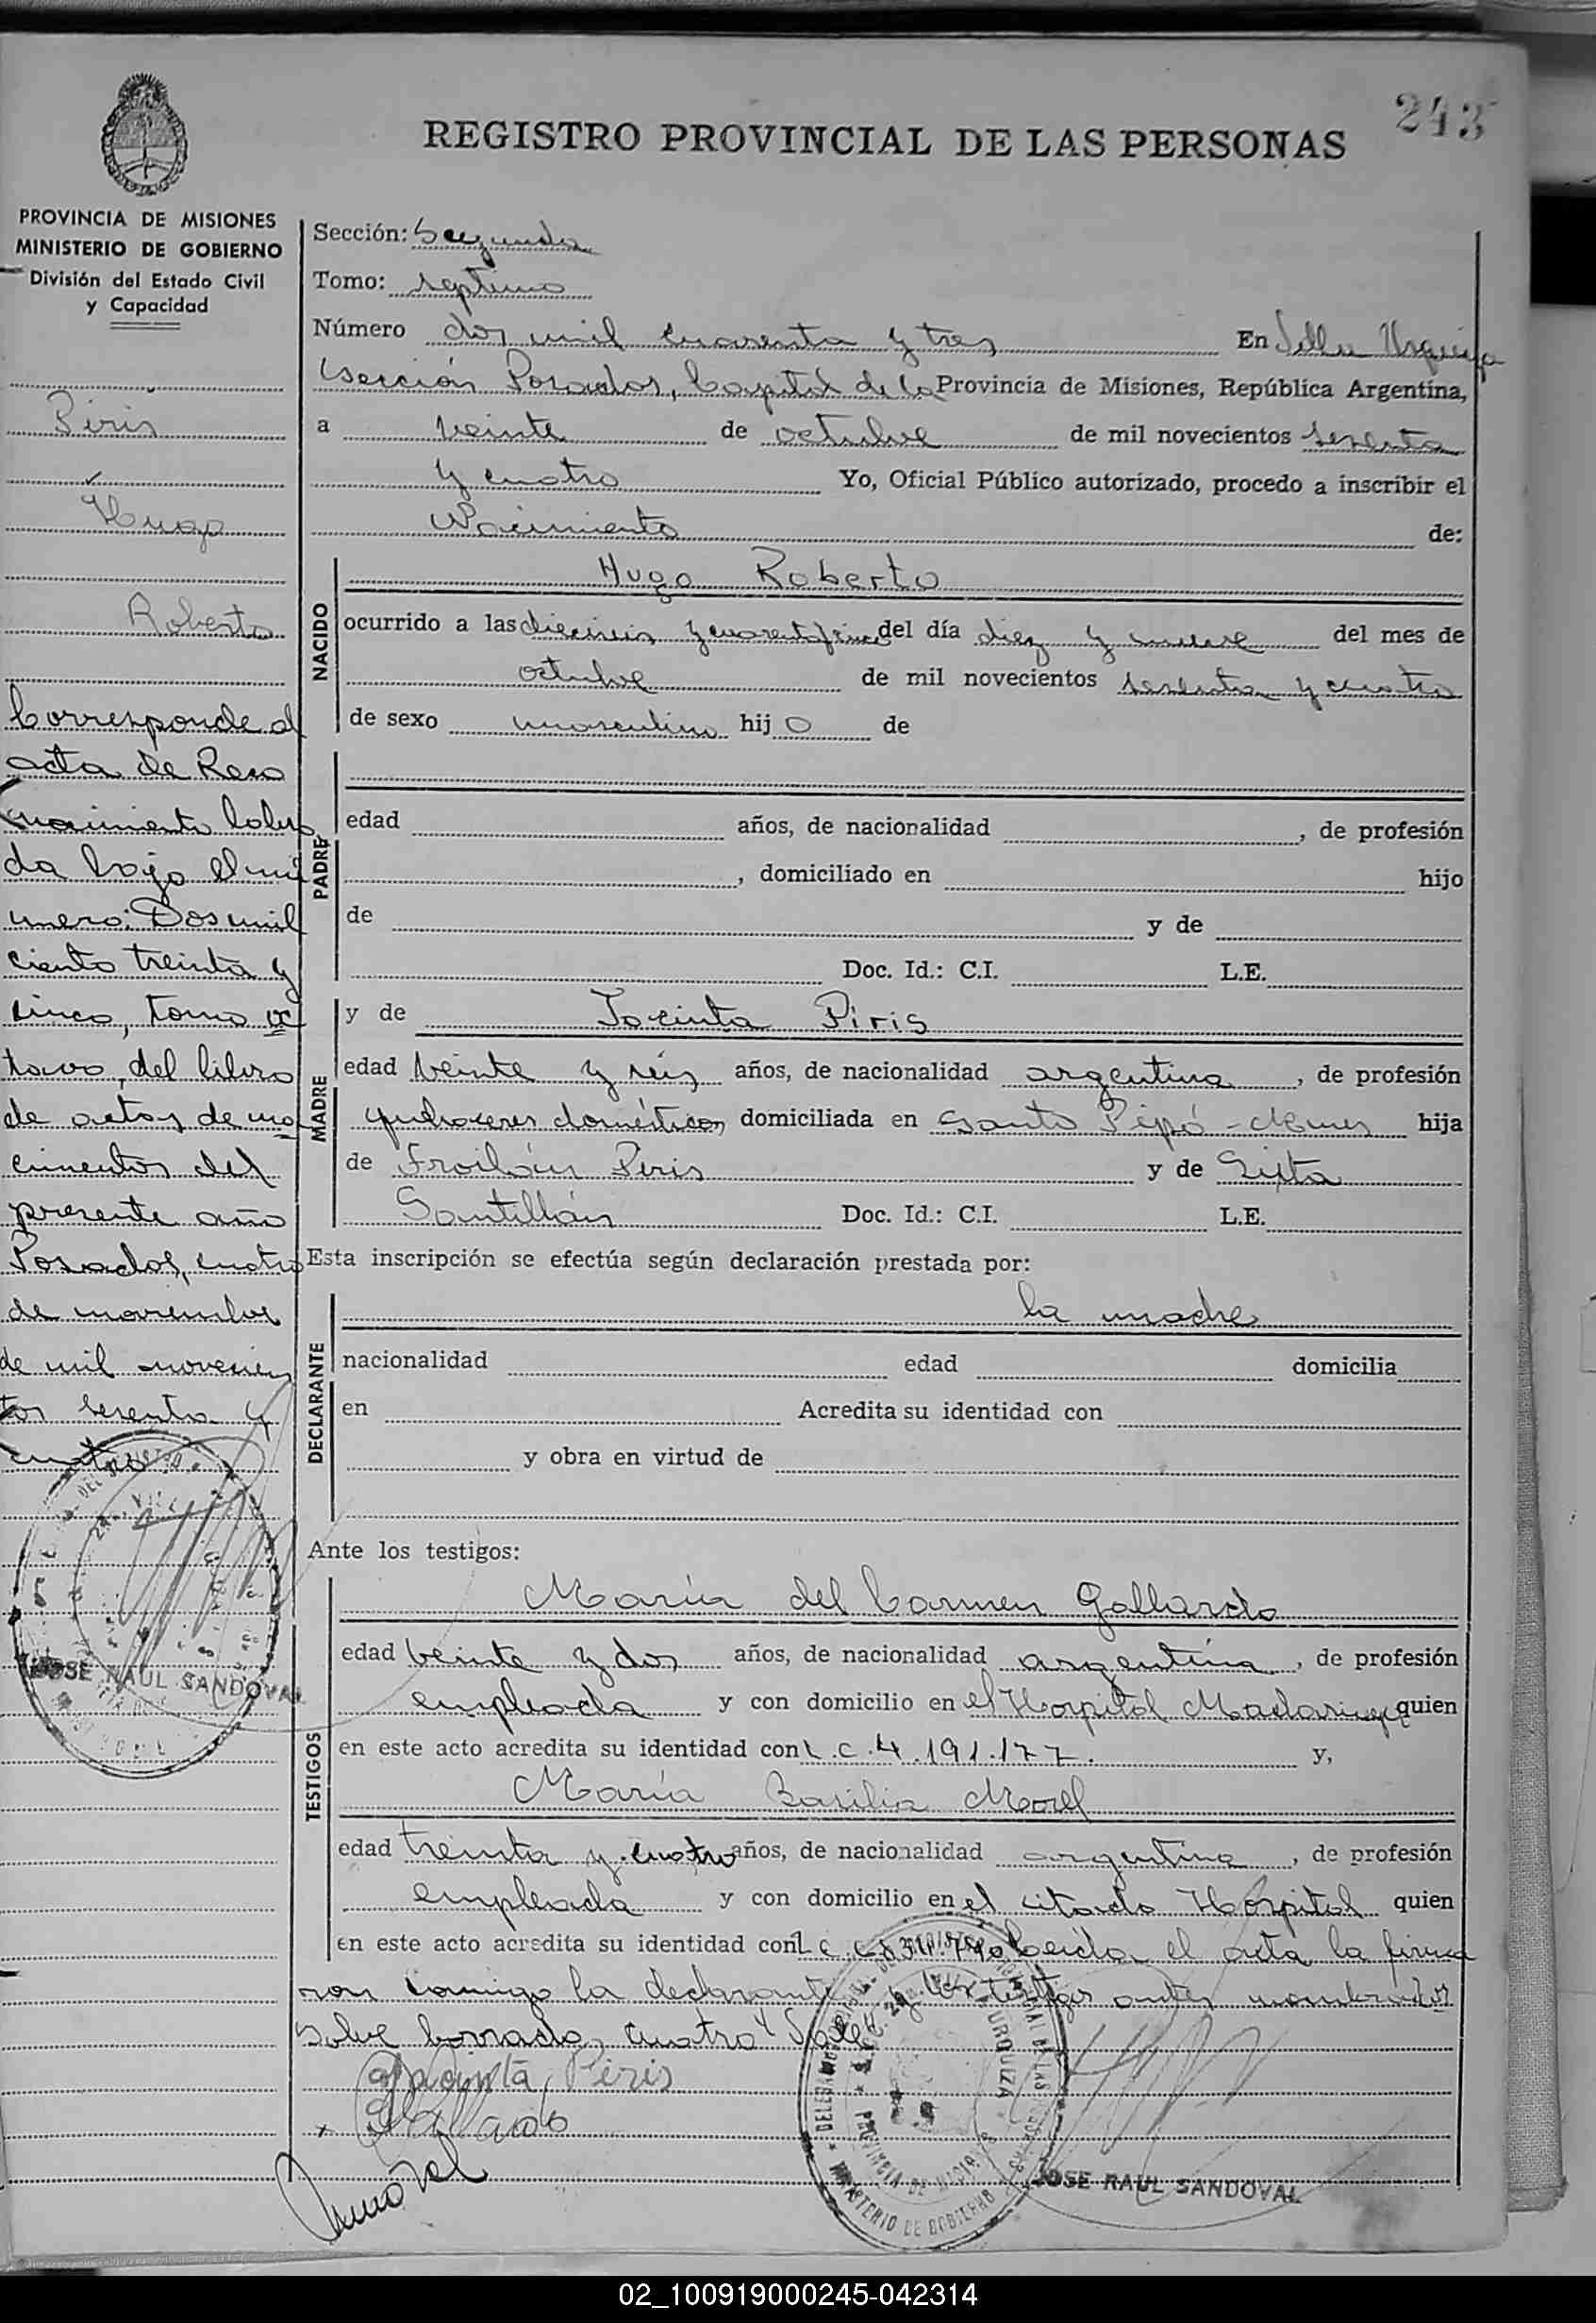 243
REGISTRO PROVINCIAL DE LAS PERSONAS
PROVINCIA DE MISIONES
MINISTERIO DE GOBIERNO
División del Estado Civil
y Capacidad
Piris
Hugo
Roberto
Corresponde al
acta de Reco
nocimiento labra
da bajo el nú
mero: Dos mil
ciento treinta y
cinco, tomo oc
tavo, del libro
de actas de na
cimientos del
presente año
Posadas, cuatro
de noviembre
de mil novecien
tos sesenta y
cuatro
JOSE RAUL SANDOVAL
Sección: Segunda
Tomo: septimo
Número dos mil cuarenta y tres En Villa Urquiza
Sección Posadas, Capital de la Provincia de Misiones, República Argentina,
a veinte de octubre de mil novecientos sesenta
y cuatro Yo, Oficial Público autorizado, procedo a inscribir el
Nacimiento de:
NACIDO
Hugo Roberto
ocurrido a las dieciseis y cuarenta y cinco del día diez y nueve del mes de
octubre de mil novecientos sesenta y cuatro
de sexo masculino hij o de
PADRE
edad años, de nacionalidad , de profesión
, domiciliado en hijo
de y de
Doc. Id.: C.I. L.E.
MADRE
y de Jacinta Piris
edad veinte y seis años, de nacionalidad argentina , de profesión
quehaceres domésticos domiciliada en Santo Pipó - Mnes hija
de Froilán Piris y de Sixta
Santillán Doc. Id.: C.I. L.E.
Esta inscripción se efectúa según declaración prestada por:
DECLARANTE
la madre
nacionalidad edad domicilia
en Acredita su identidad con
y obra en virtud de
Ante los testigos:
TESTIGOS
María del Carmen Gallardo
edad veinte y dos años, de nacionalidad argentina , de profesión
empleada y con domicilio en el Hospital Madariaga quien
en este acto acredita su identidad con L.C. 4.191.177. y,
María Basilia Morel
edad treinta y cuatro años, de nacionalidad argentina , de profesión
empleada y con domicilio en el citado Hospital quien
en este acto acredita su identidad con L.C. leida el acta la firma
ron conmigo la declarante y los testigos antes nombrados
sobre borrado, cuatro "Vale"
Jacinta Piris
Gallardo
Morel
DELEGACION REGISTRO PROVINCIAL DE LAS PERSONAS
URQUIZA
PROVINCIA DE MISIONES
MINISTERIO DE GOBIERNO
JOSE RAUL SANDOVAL
02_100919000245-042314